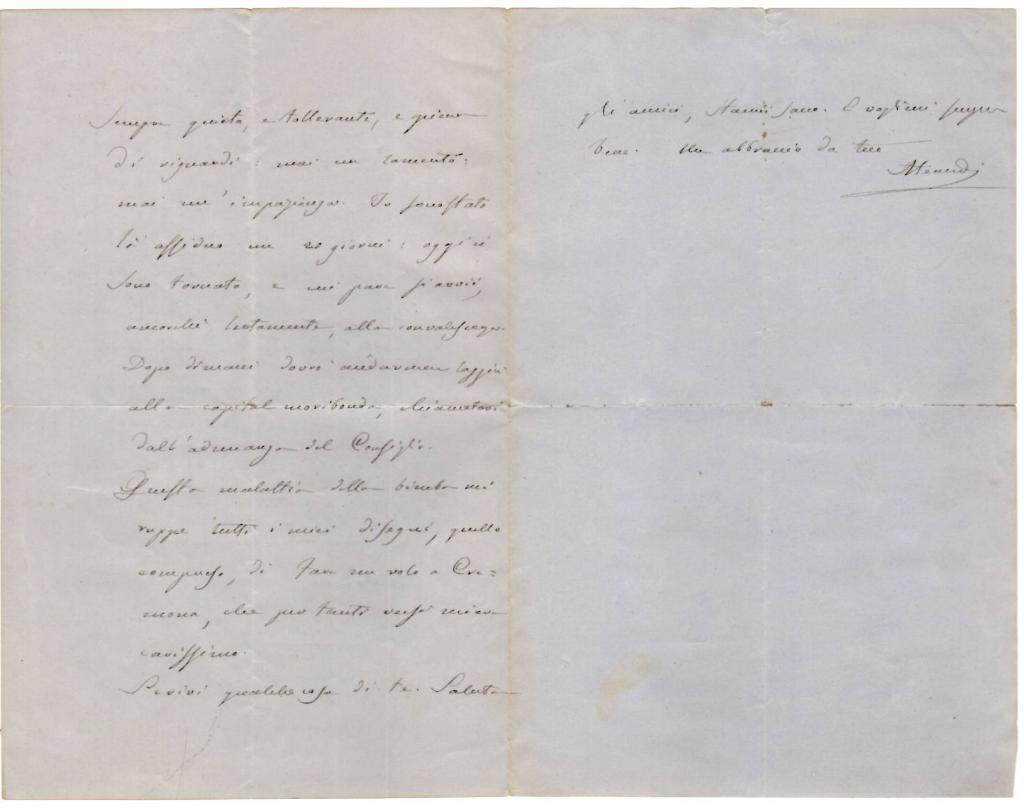 Sempre quieta, e tollerante, e piena
di riguardi: mai un lamento:
mai un'impazienza. Io sono stato
là assiduo un 20 giorni: oggi vi
sono tornato, e mi pare s'avvii,
ancorché lentamente, alla convalescenza.
Dopo dimani dovrò andarmen laggiù
alla capital moribonda, chiamatovi
dall'adunanza del Consiglio.
Questa malattia della bimba mi
ruppe tutti i miei disegni, quello
compreso, di fare un volo a Cre=
mona, che per tanti versi m'era
carissimo.
Scrivi qualche cosa di te. Saluta
gli amici, stammi sano. E voglimi sempre
bene. Un abbraccio da tuo